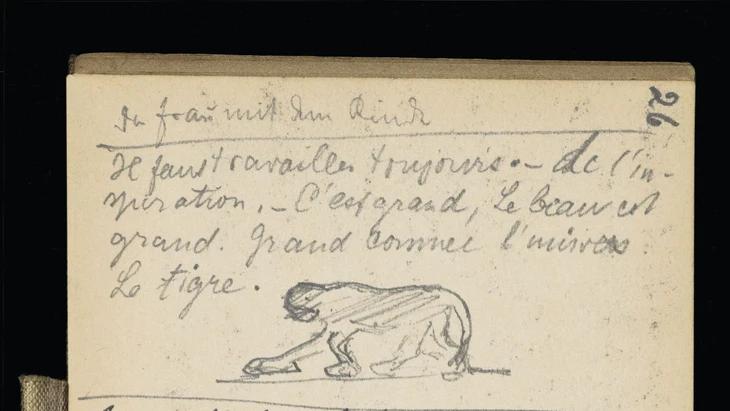 26
die frau mit dem Kinde
Il faut travailler toujours. – de l'in-
spiration. – C'est grand, Le beau est
grand. Grand comme l'univers.
Le tigre.